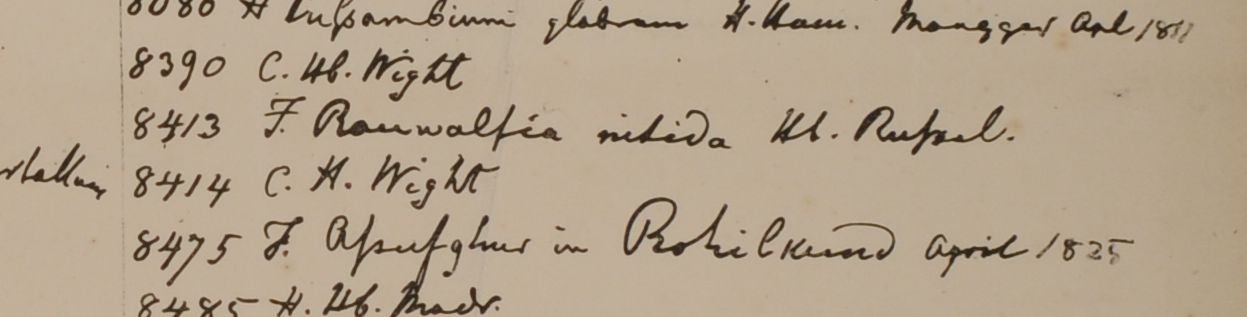 8080 H glabrum H. Ham. Mongger Apl 1811
8390 C. Hb. Wight
8413 F. Rauwolfia nitida Hb. Russel.
8414 C. H. Wight
8475 F. Assufghur in Rohilkund April 1825
8485 H. Hb. Madr.